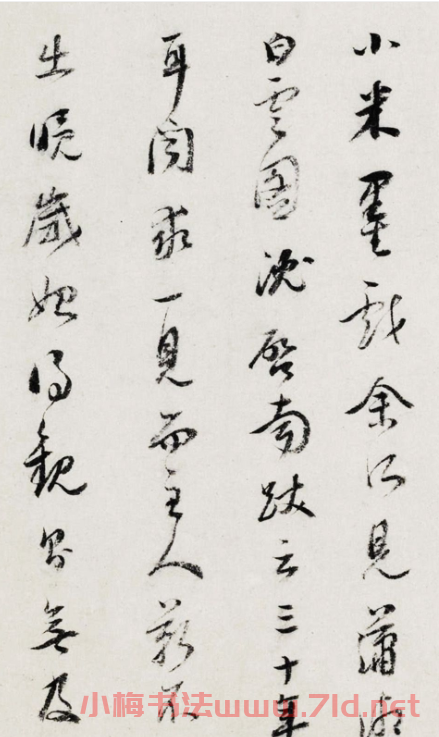 小米墨戲余所見瀟湘
白雲圖沈啓南跋云三十年
耳聞求一見而主人靳不
出晚歲始得觀即無及
小梅书法www.7ld.net